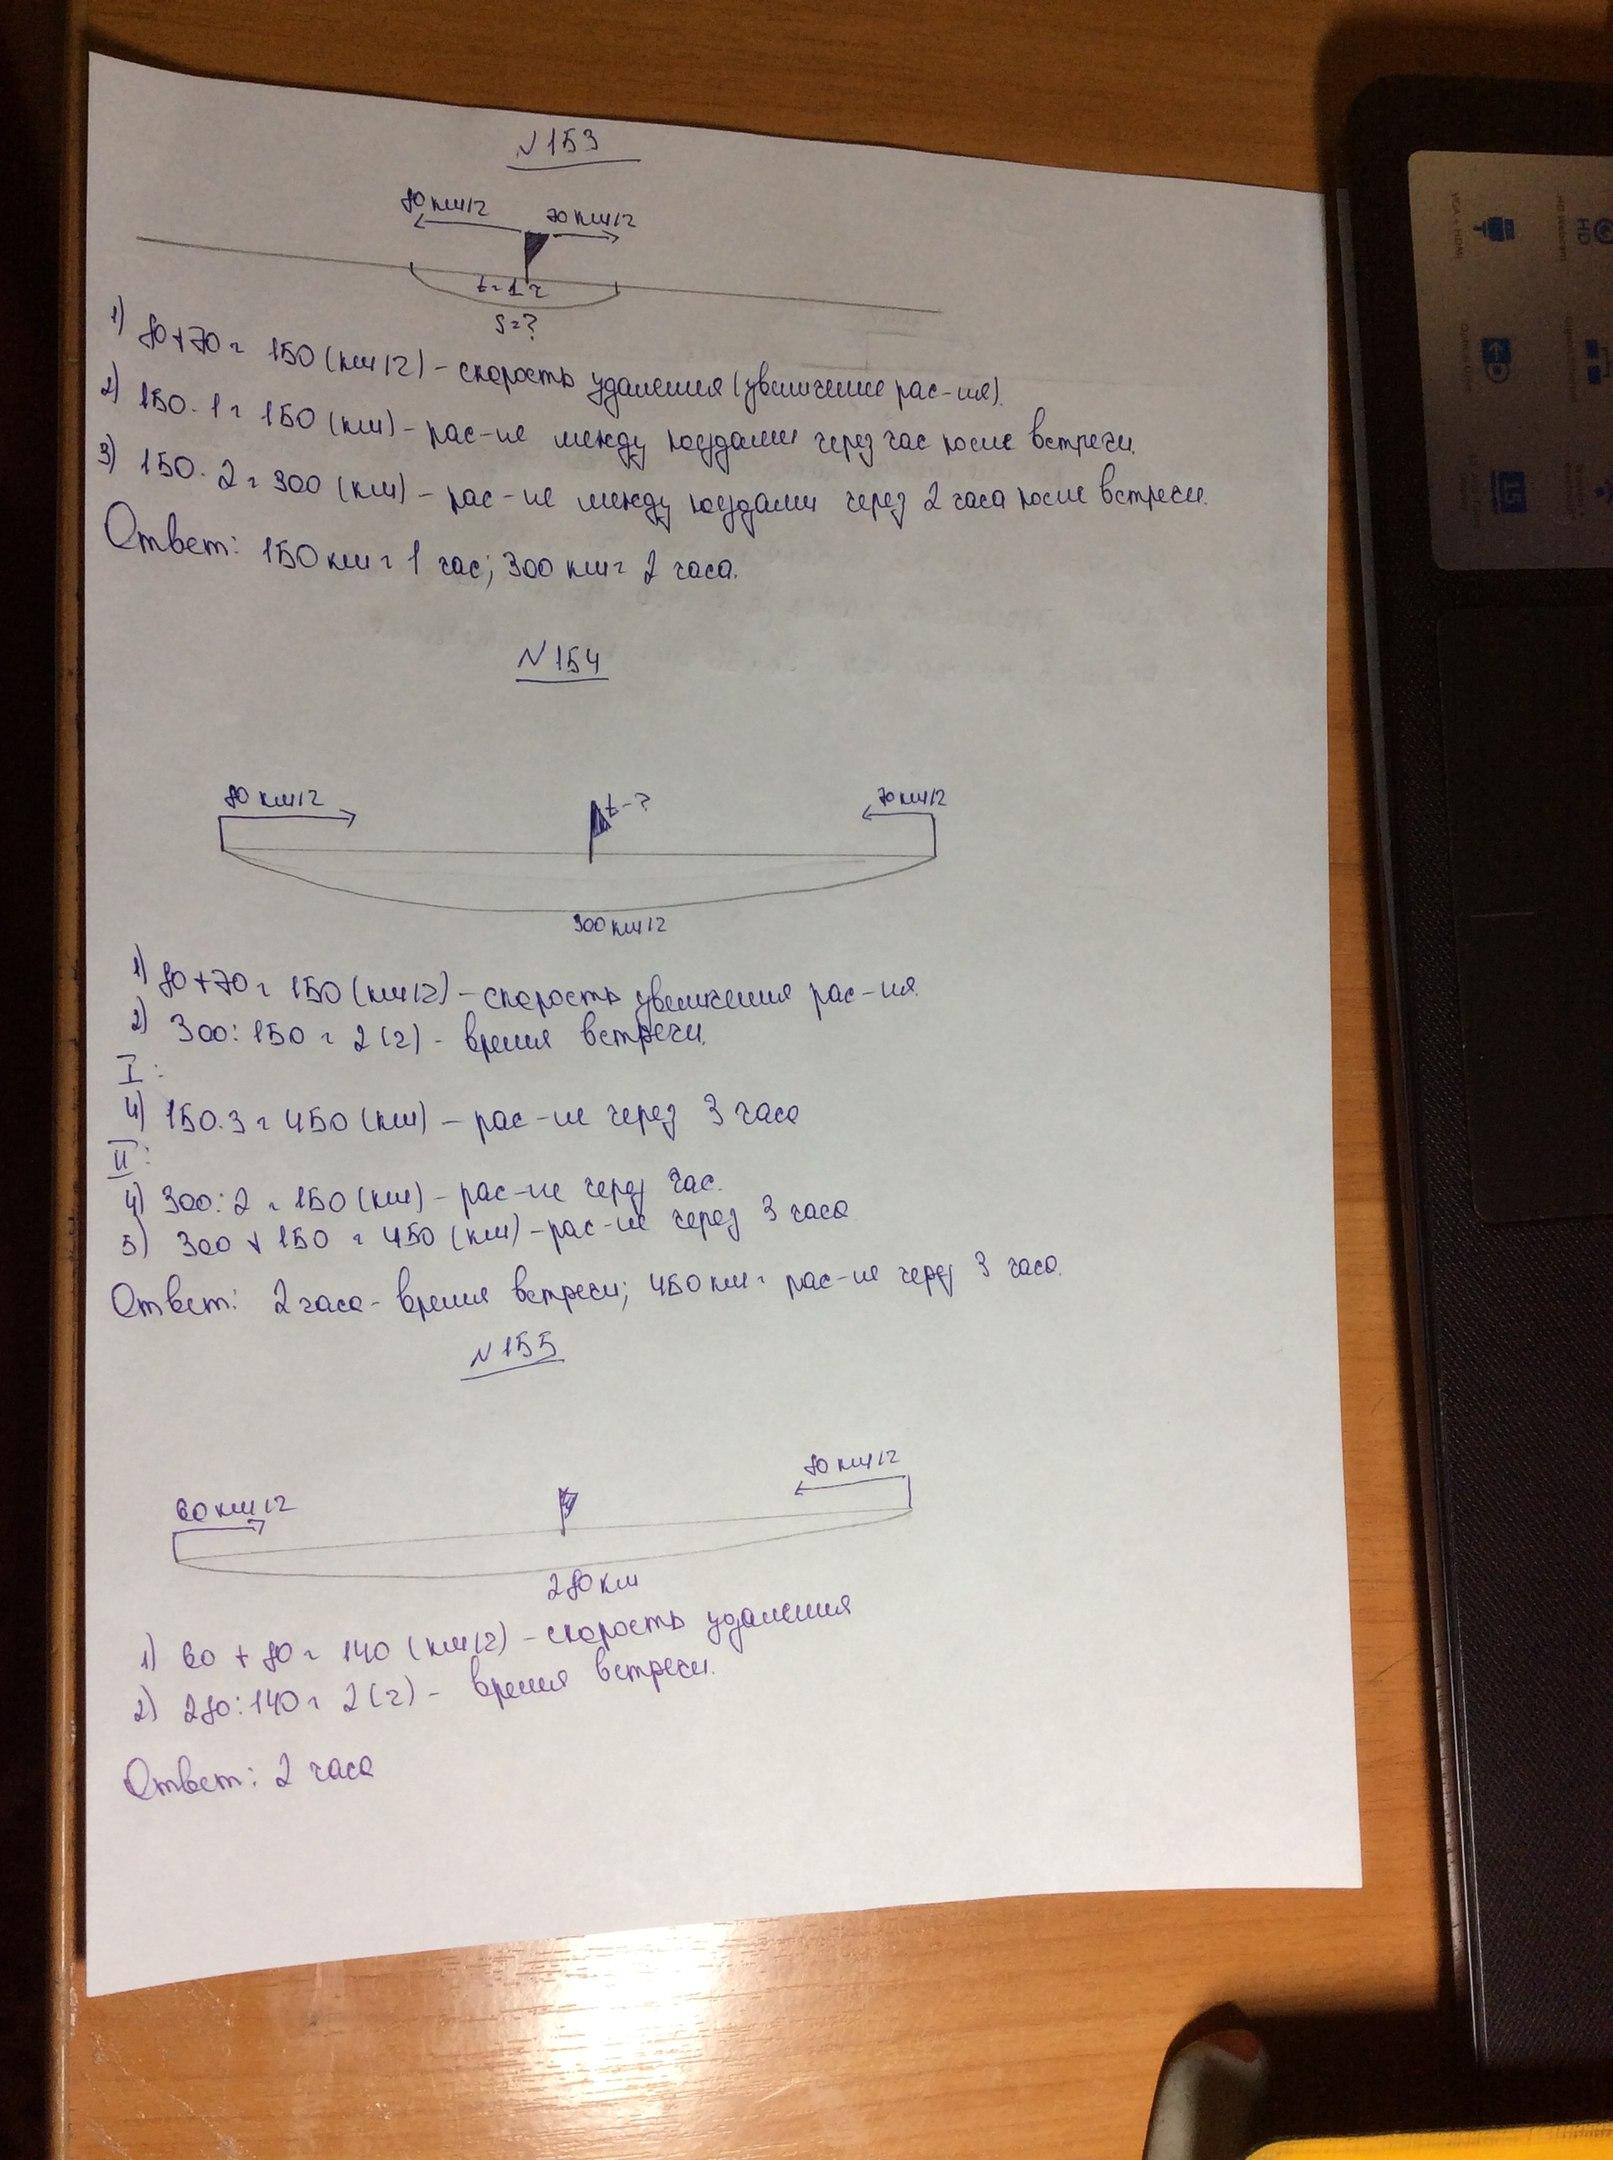 N153
80 км/г
70 км/г
t=1г
S=?
1) 80+70= 150 (км/г) – скорость удаления (увеличение рас-ия).
2) 150·1= 150 (км) – рас-ие между поездами через час после встречи.
3) 150·2=300 (км) – рас-ие между поездами через 2 часа после встречи.
Ответ: 150 км=1 час; 300 км= 2 часа.
N154
80 км/г
t-?
70 км/г
300 км/г
1) 80+70= 150 (км/г) – скорость увеличения рас-ия.
2) 300:150= 2(г) – время встречи.
I:
4) 150·3=450 (км) – рас-ие через 3 часа
II:
4) 300:2=150 (км) – рас-ие через час.
5) 300+150=450 (км) – рас-ие через 3 часа
Ответ: 2 часа – время встречи; 450 км= рас-ие через 3 часа.
N155
60 км/г
80 км/г
280 км
1) 60+80= 140 (км/г) – скорость удаления
2) 280:140= 2(г) – время встречи.
Ответ: 2 часа
HD